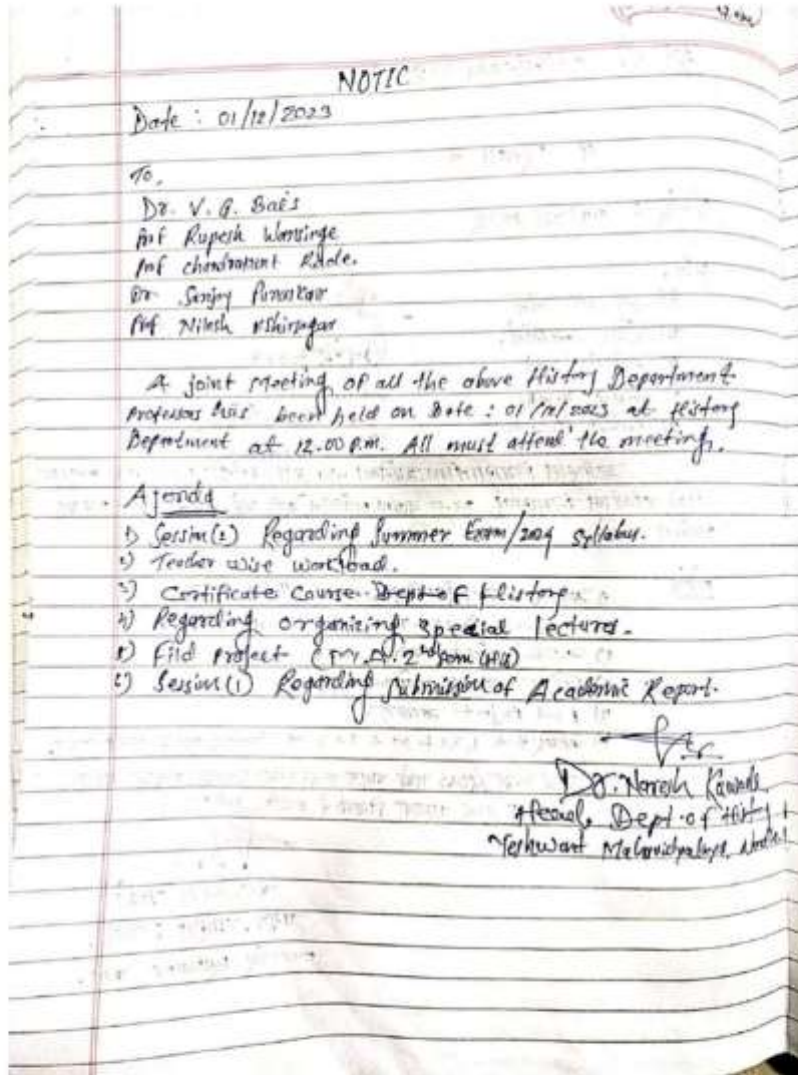 NOTIC
Date : 01/12/2023
To,
Dr. V. G. Bais
Prof Rupesh
Prof Chandrakant
Dr. Sanjay
Prof Nilesh
A joint meeting of all the above History Department
Professors has been held on Date : 01/12/2023 at History
Department at 12.00 P.M. All must attend the meeting.
Agenda
1) Session(2) Regarding Summer Exam/2024 syllabus.
2) Teacher wise workload.
3) Certificate Course Dept of History
4) Regarding organizing special lectures.
5) Fild Project 2nd Sem
6) Session(1) Regarding Submission of Academic Report.
Dr. Naresh
Head, Dept of
Yeshwant Mahavidyalaya,